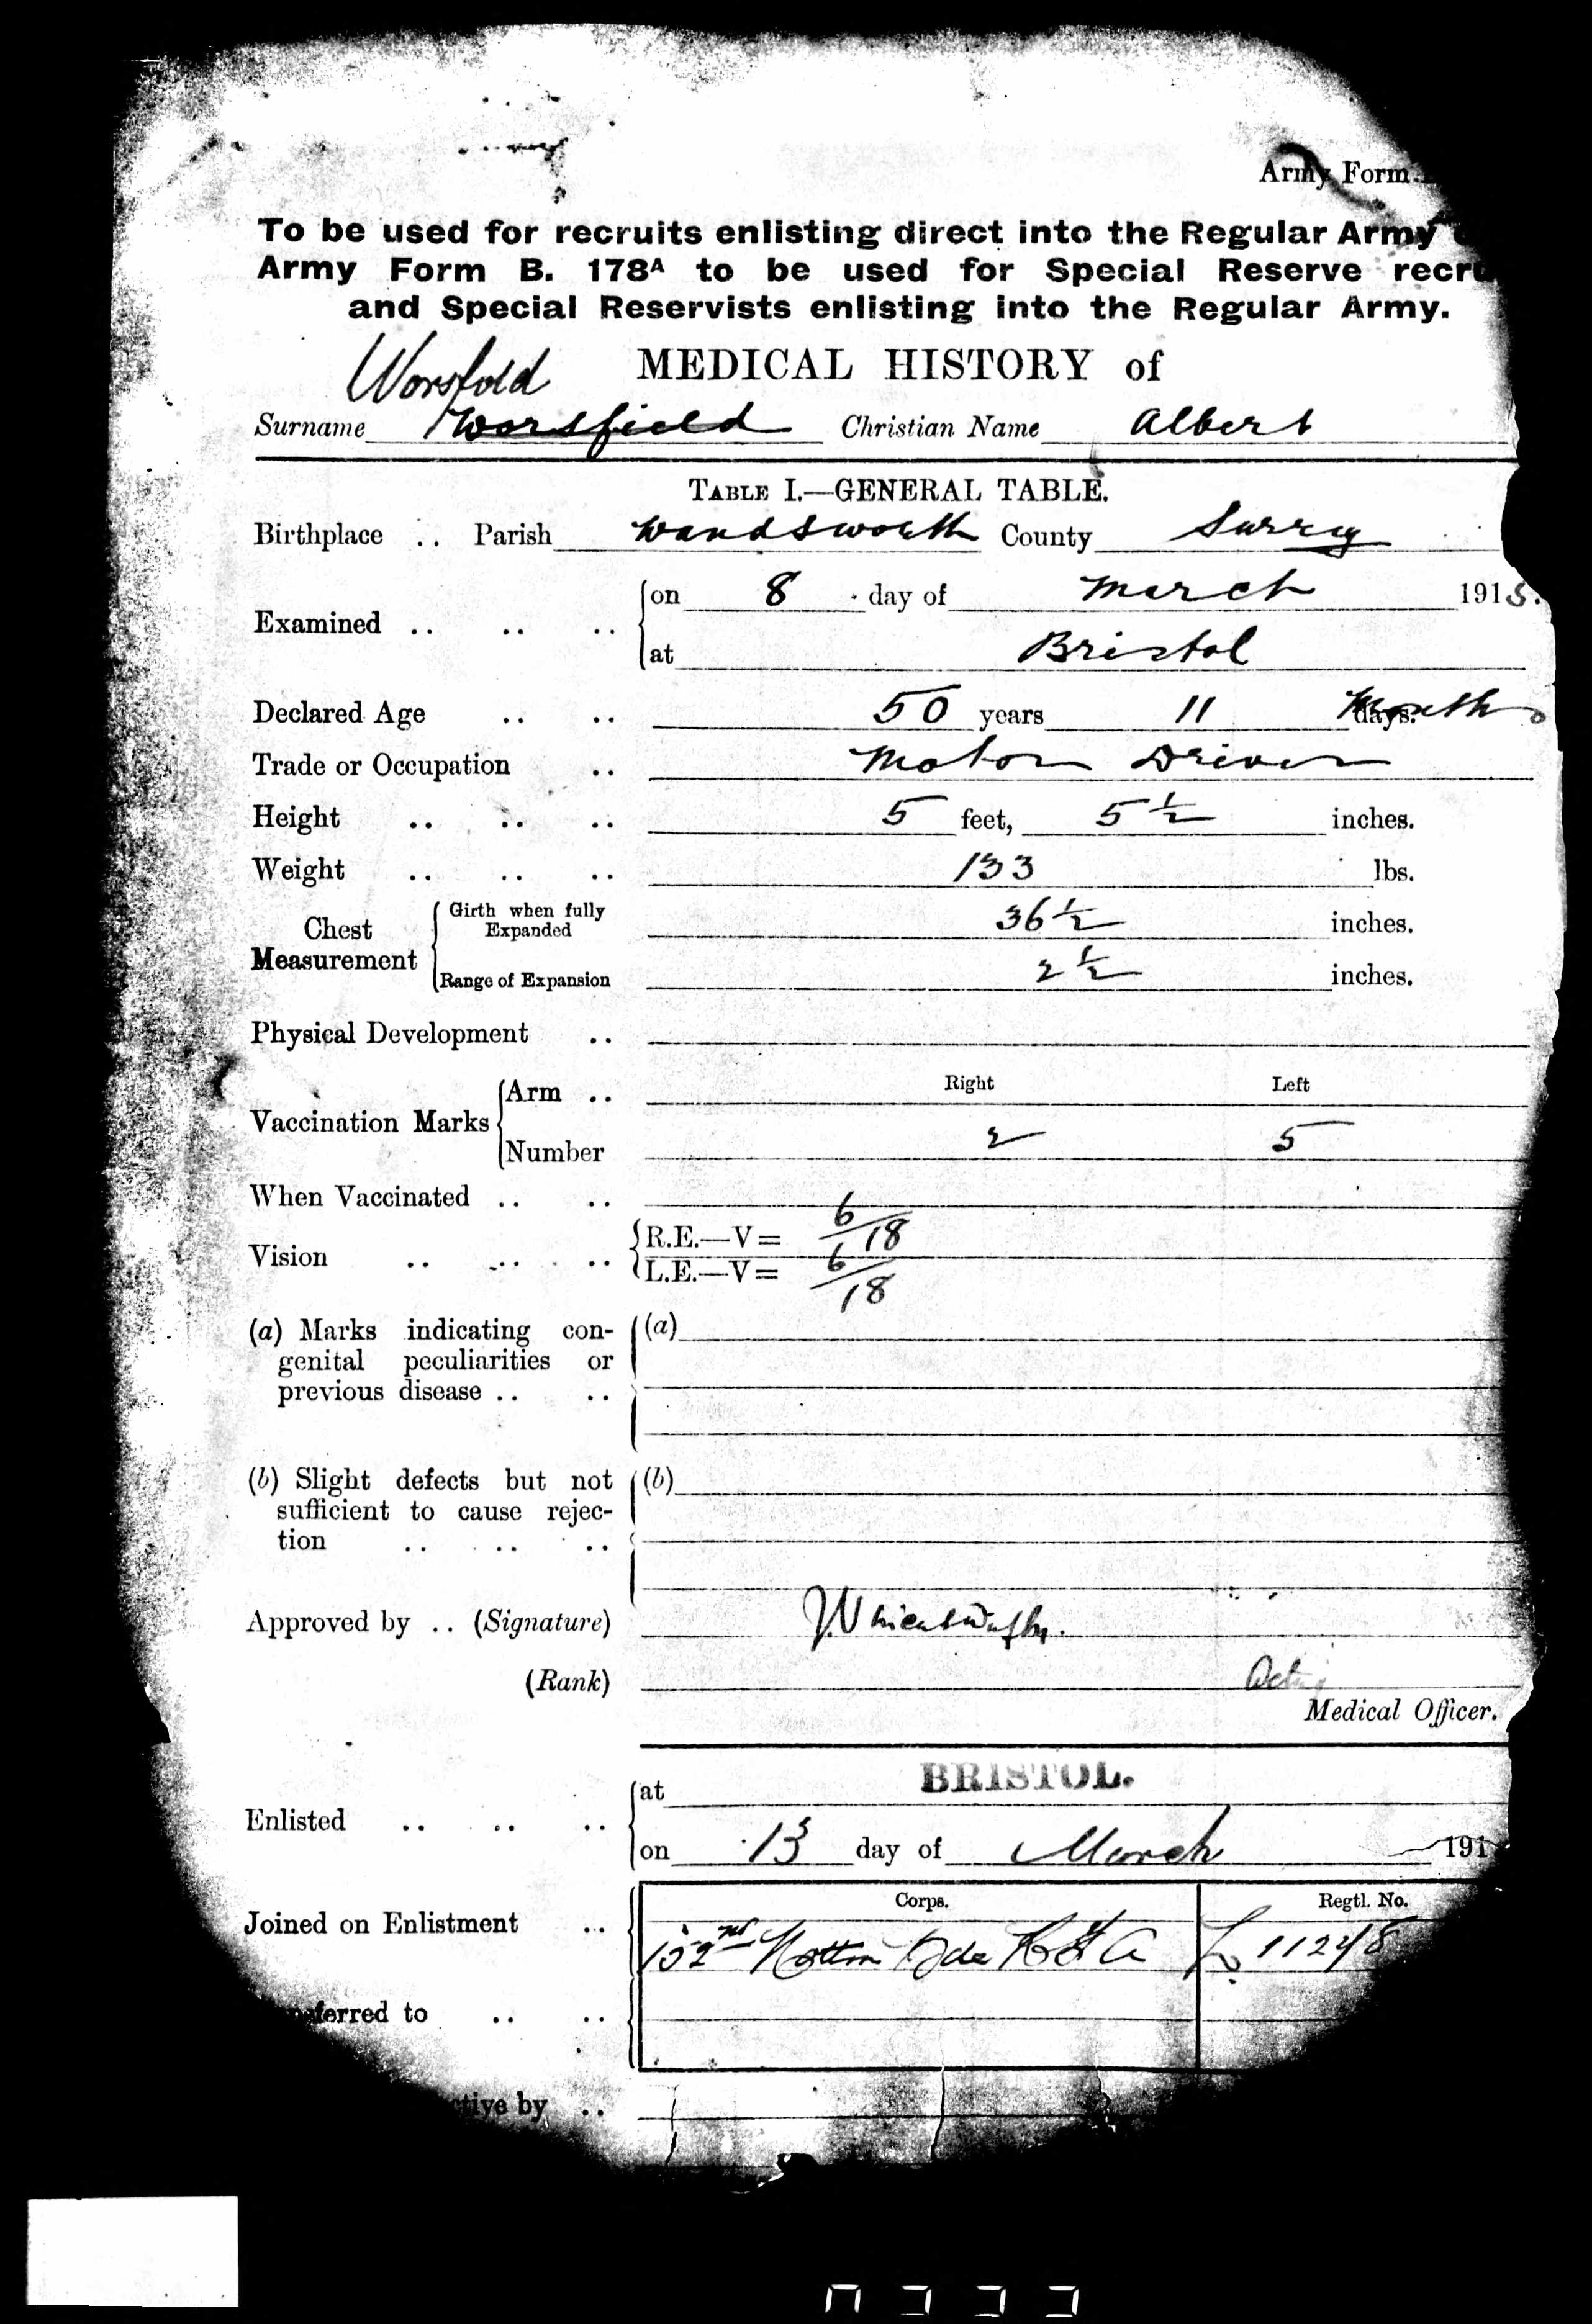 Army Form
To be used for recruits enlisting direct into the Regular Army
Army Form B. 178A to be used for Special Reserve recru
and Special Reservists enlisting into the Regular Army.
Worsfold
MEDICAL HISTORY of
Surname Worsfield Christian Name Albert
TABLE I.—GENERAL TABLE.
Birthplace .. Parish Wandsworth County Surry
Examined .. .. .. on 8 day of March 1915.
at Bristol
Declared Age .. .. 50 years 11 days. Months
Trade or Occupation .. Motor Driver
Height .. .. .. 5 feet, 5 ½ inches.
Weight .. .. .. 133 lbs.
Chest Measurement Girth when fully Expanded 36 ½ inches.
Range of Expansion 2 ½ inches.
Physical Development ..
Right Left
Vaccination Marks Arm ..
Number 2 5
When Vaccinated .. ..
Vision .. .. .. R.E.—V= 6/18
L.E.—V= 6/18
(a) Marks indicating con- (a)
genital peculiarities or
previous disease .. ..
(b) Slight defects but not (b)
sufficient to cause rejec-
tion .. .. ..
Approved by .. (Signature)
(Rank)
Medical Officer.
Enlisted .. .. .. at BRISTOL.
on 13 day of March 191
Corps. Regtl. No.
Joined on Enlistment .. 152nd Nottm Bde R F A L 11248
ferred to .. ..
ctive by ..